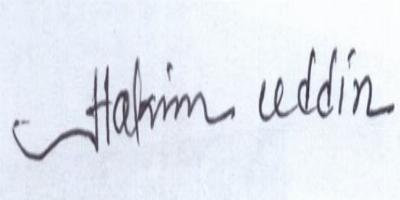 Hakim uddin